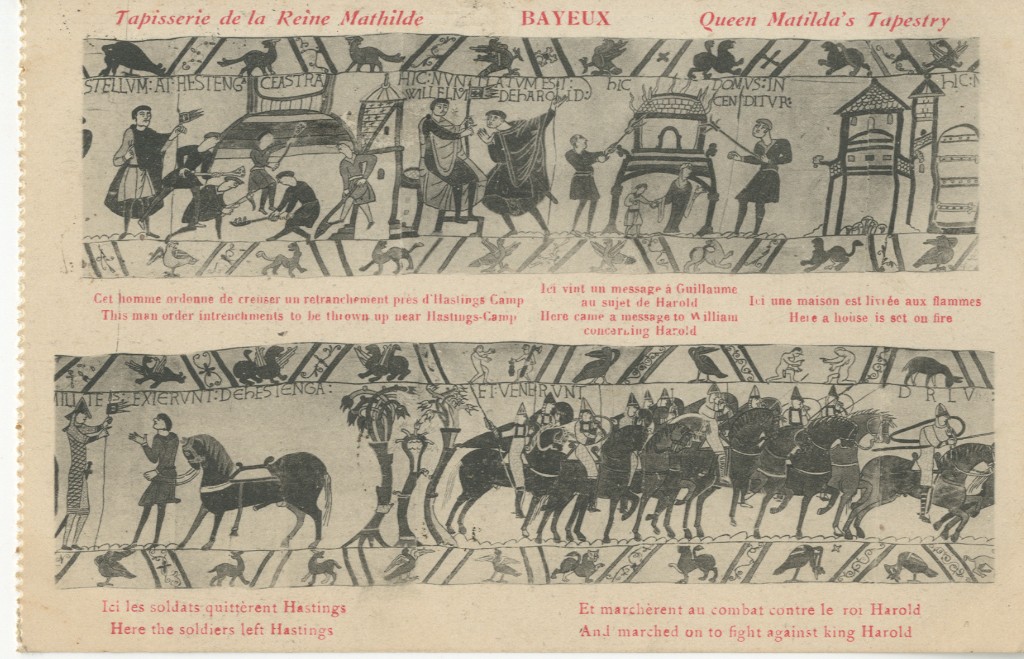 Tapisserie de la Reine Mathilde BAYEUX Queen Matilda's Tapestry
STELLVM: AT: HESTENG CEASTRA HIC: NVNTIATVM EST: HIC DOMVS: IN HIC: N
WILLELM DEHAROLD: CENDITVR:
Cet homme ordonne de creuser un retranchement près d'Hastings Camp
This man order intrenchments to be thrown up near Hastings-Camp
Ici vint un message à Guillaume
au sujet de Harold
Here came a message to William
concerning Harold
Ici une maison est livrée aux flammes
Here a house is set on fire
MILITES: EXIERVNT: DEHESTENGA: ET VENERVNT
Ici les soldats quittèrent Hastings
Here the soldiers left Hastings
Et marchèrent au combat contre le roi Harold
And marched on to fight against king Harold